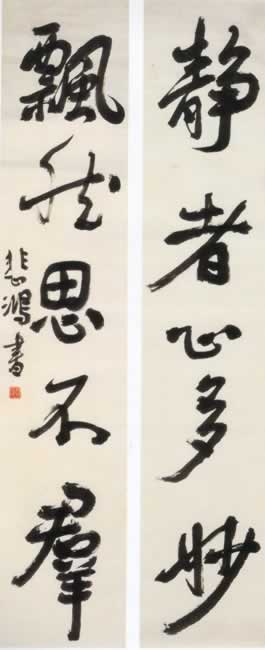 静者心多妙
飄然思不羣
悲鴻書